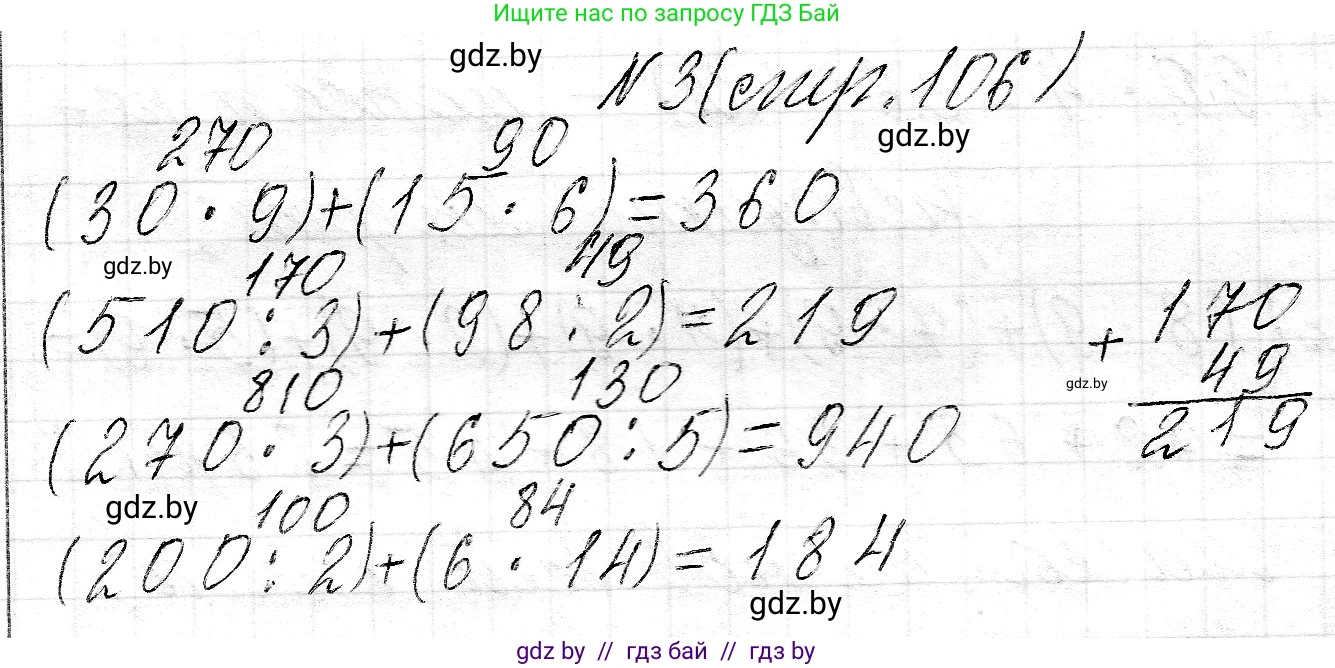 Ищите нас по запросу ГДЗ Бай
gdz.by
N 3 (стр. 106)
gdz.by
270 90
(30 · 9) + (15 · 6) = 360
gdz.by
170 49
(510 : 3) + (98 : 2) = 219
170
+ 49
gdz.by
219
810 130
(270 · 3) + (650 : 5) = 940
gdz.by
100 84
(200 : 2) + (6 · 14) = 184
gdz.by
gdz by // гдз бай // гдз by